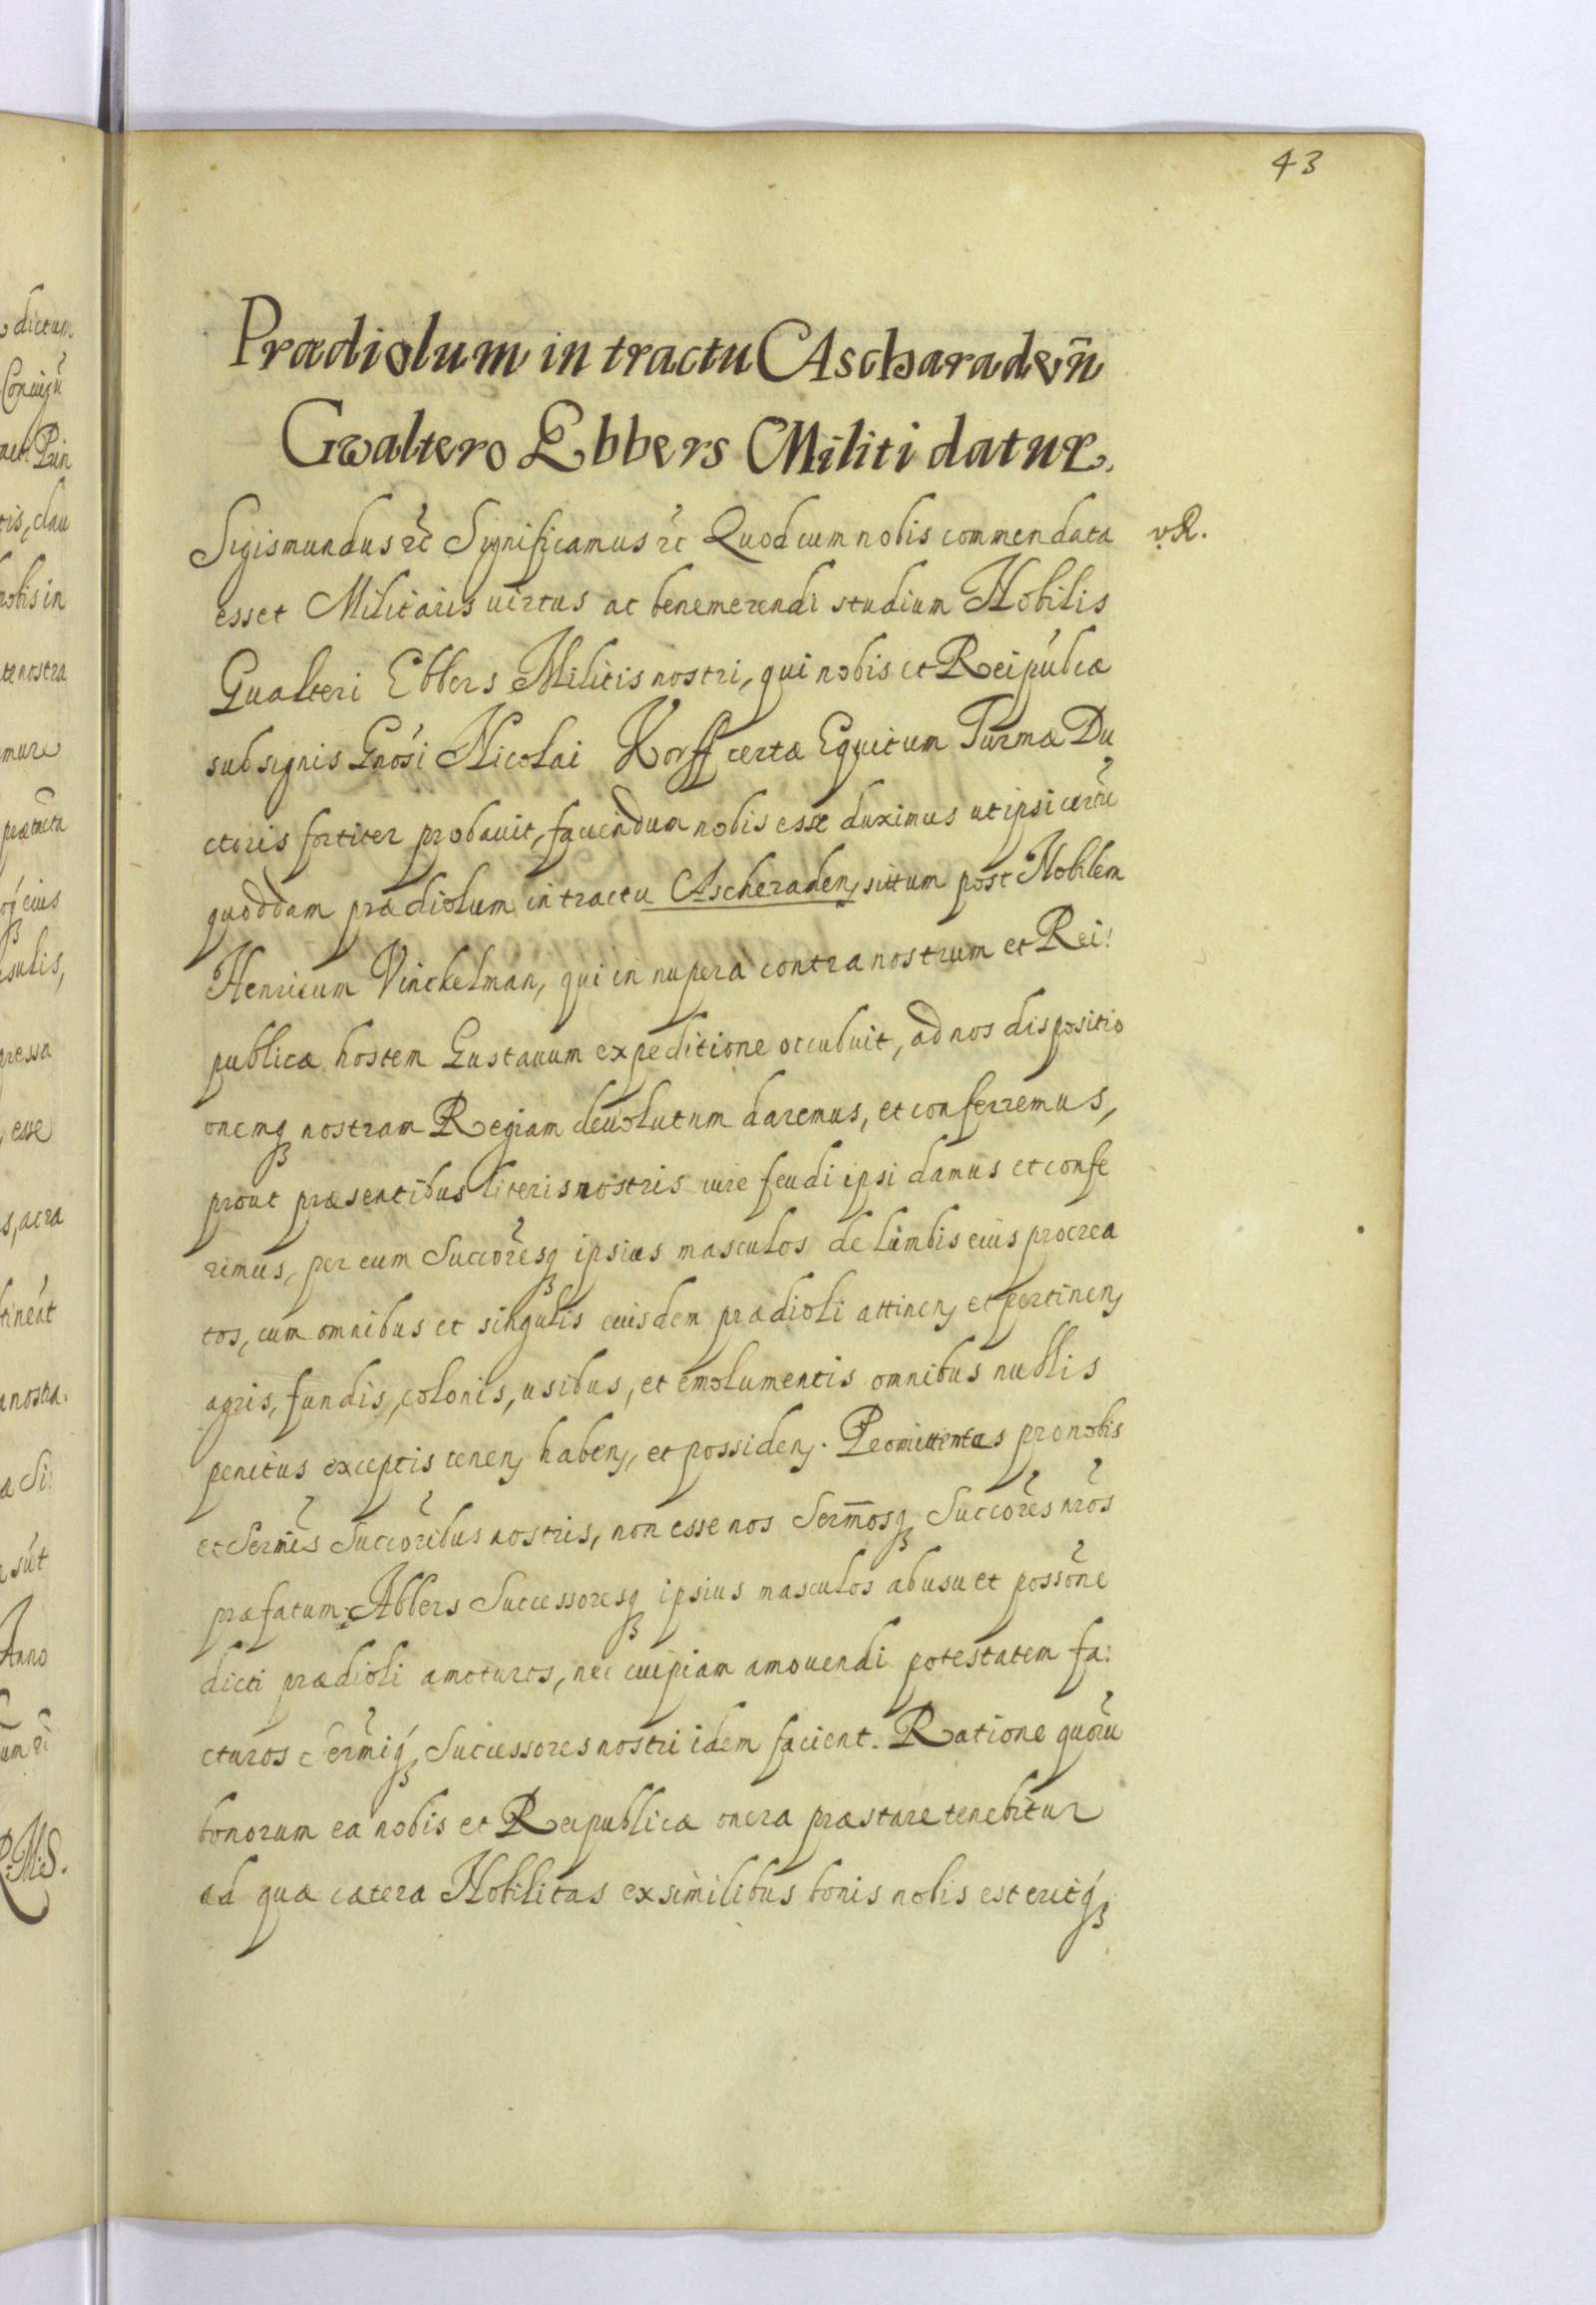 43
Prædiolum in tractu Ascharadeñ
Gwaltero Ebbers Militi datur.
Sigismundus etc̃ Significamus etc̃ Quod cum nobis commendata
v.R.
esset Militaris uirtus ac benemerendi studium Nobilis
Gualteri Ebbers Militis nostri, qui nobis et Reipúbcæ
sub signis Gnósi Nicolai Korff certæ Equitum Turmæ Du
ctoris fortiter probauit, faciendum nobis esse duximus ut ipsi certũ
quoddam prædiolum in tractu Ascheraden̄ situm post Noblem
Henricum Vinckelman, qui in nupera contra nostrum et Rei:
publicæ hostem Gustauum expeditione occubuit, ad nos dispositio
onemq̨ nostram Regiam deuolutum daremus, et conferremus,
prout præsentibus literis nostris iure feudi ipsi damus et confe
rimus, per eum Succõresq̨ ipsius masculos de lumbis eius procrea
tos, cum omnibus et singulis eiusdem prædioli attinen̄ et pertinen̄
agris, fundis, colonis, usibus, et emolumentis omnibus nullis
penitus exceptis tenen̄ haben̄, et possiden̄. Promittentes pro nobis
et Sermĩs Succõribus nostris, non esse nos Serm̄osq̨ Succõres nr̃os
præfatum Abbers Successoresq̨ ipsius masculos ab usu et possõne
dicti prædioli amoturos, nec cuipiam amouendi potestatem fa:
cturos Serm̃iq̨ Successores nostri idem facient. Ratione quorũ
bonorum ea nobis et Reipublicæ onera præstare tenebitur
ad quæ cætera Nobilitas ex similibus bonis nobis est eritq̨